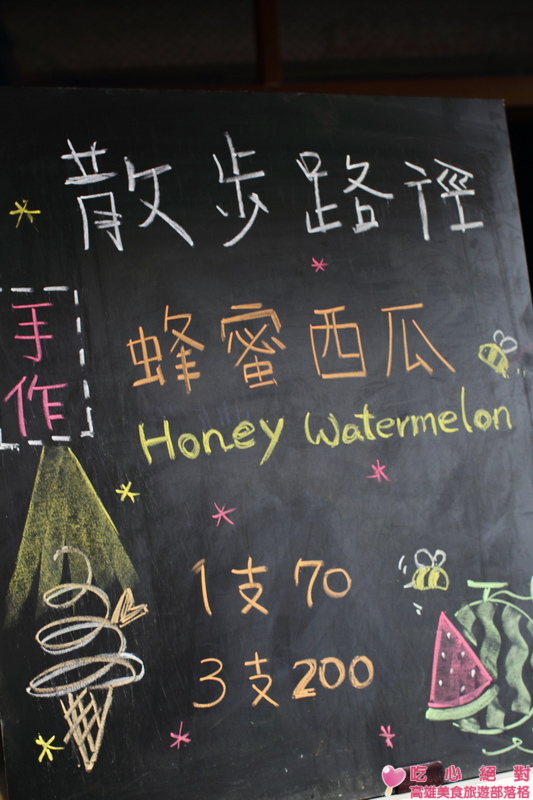 散步路徑
手作
蜂蜜西瓜
Honey Watermelon
1支 70
3支 200
吃心絕對
高雄美食旅遊部落格